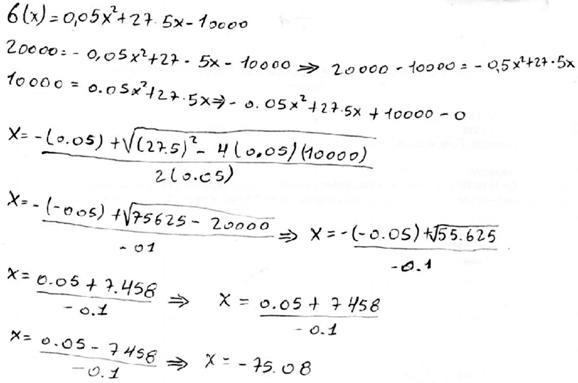 6(x)=0,05x²+27.5x-10000
20000=-0,05x²+27-5x-10000⇒ 20000-10000=-0,5x²+27·5x
10000=0.05x²+27.5x⇒-0.05x²+27.5x+10000-0
x=-(0.05)+√(275)²-4(0.05)(10000)
2(0.05)
x=-(-005)+√75625-20000 ⇒ x=-(-0.05)+√55.625
-01 -0.1
x=0.05+7.458 ⇒ x=0.05+7458
-0.1 -0.1
x=0.05-7458 ⇒ x=-75.08
-0.1